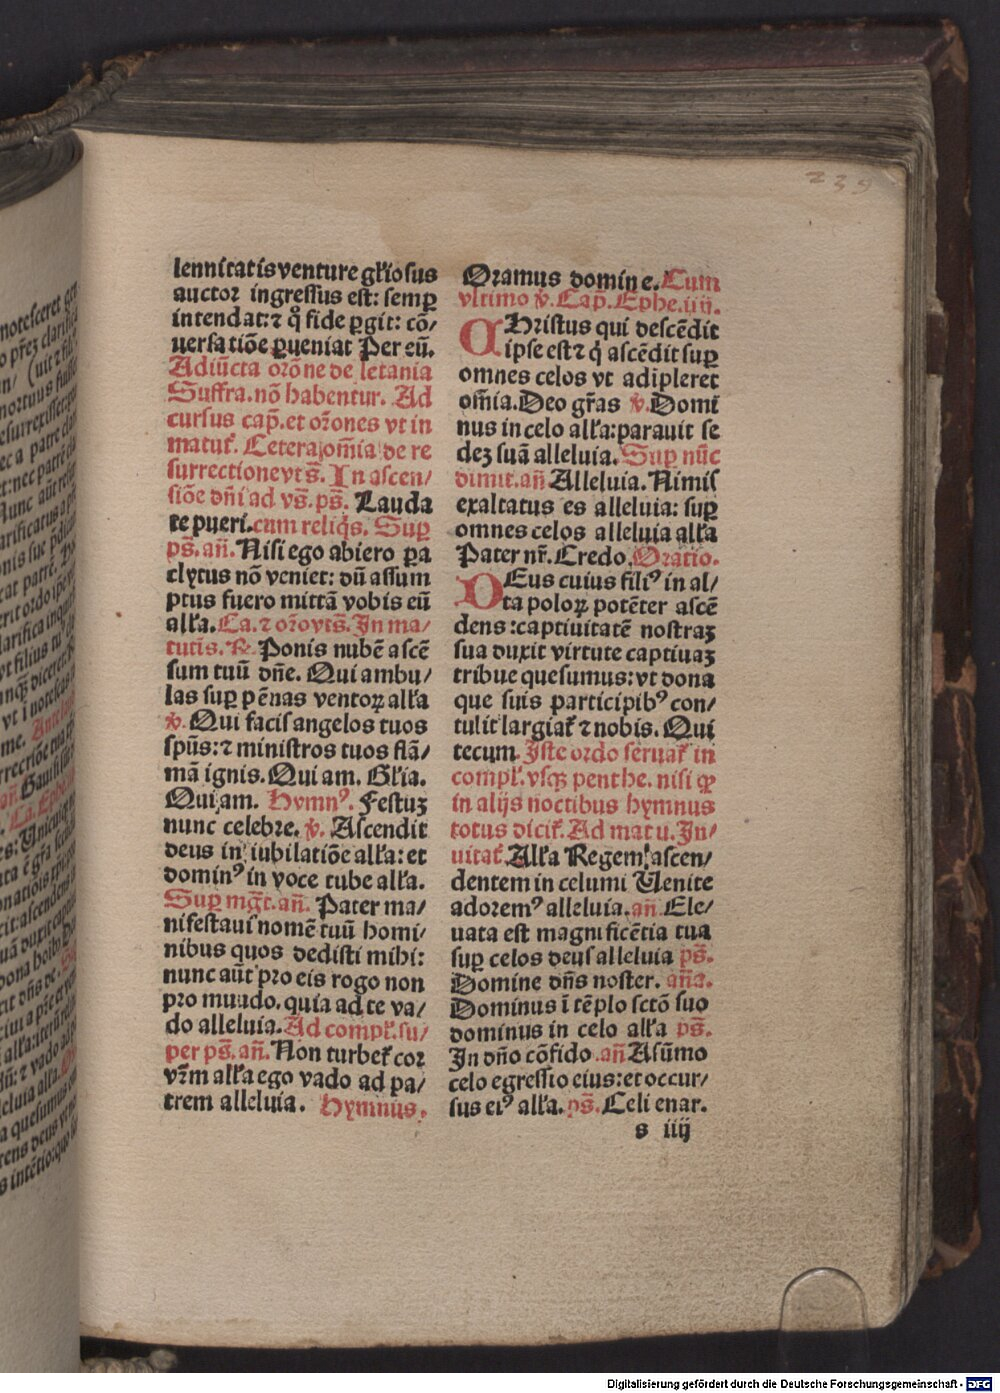 239
lennitatis venture gl'iosus
auctor ingressus est: semꝑ
intendat: ⁊ q̊ fide ꝑgit: cō/
uersatiōe ꝑueniat Per eū.
Adiūcta orōne de letania
Suffra. nō habentur. Ad
cursus cap̄. et or̄ones vt in
matut̉. Cetera om̄ia de re
surrectione vt s̄. In ascen/
siōe dn̄i ad vs̄. ps̄. Lauda
te pueri. cum reliq̄s. Suꝑ
ps̄. an̄. Nisi ego abiero ꝑa
clytus nō veniet: dū assum
ptus fuero mittā vobis eū
all'a. Ca. ⁊ or̄o vt s̄. In ma/
tutīs. ℟. Ponis nubē ascē
sum tuū dn̄e. Qui ambu/
las suꝑ pēnas ventoꝝ all'a
℣. Qui facis angelos tuos
spūs: ⁊ ministros tuos flā/
mā ignis. Qui am. Gl'ia.
Qui am. Hymnꝰ. Festuꝫ
nunc celebre. ℣. Ascendit
deus in iubilatiōe all'a: et
dominꝰ in voce tube all'a.
Suꝑ mḡt. an̄. Pater ma/
nifestaui nomē tuū homi/
nibus quos dedisti mihi:
nunc aūt pro eis rogo non
pro mundo. quia ad te va/
do alleluia. Ad compl'. su/
per ps̄. an̄. Non turbet̉ cor
vr̄m all'a ego vado ad pa/
trem alleluia. Hymnus.
Oramus domine. Cum
vltimo ℣. Cap̄. Ephe. iiij.
CHristus qui descēdit
ipse est ⁊ q̇ ascēdit suꝑ
omnes celos vt adipleret
om̄ia. Deo gr̄as ℣. Domi
nus in celo all'a: parauit se
deꝫ suā alleluia. Suꝑ nūc
dimit. an̄ Alleluia. Nimis
exaltatus es alleluia: suꝑ
omnes celos alleluia all'a
Pater nr̄. Credo. Oratio.
DEus cuius filiꝰ in al/
ta poloꝝ potēter ascē
dens: captiuitatē nostraꝫ
sua duxit virtute captiuaꝫ
tribue quesumus: vt dona
que suis participibꝰ con/
tulit largiat̉ ⁊ nobis. Qui
tecum. Iste ordo seruat̉ in
compl'. vsqꝫ penthe. nisi ꝙ
in alijs noctibus hymnus
totus dicit̉. Ad matu. In/
uitat̉. All'a Regem ascen/
dentem in celum Venite
adoremꝰ alleluia. an̄. Ele/
uata est magnificētia tua
suꝑ celos deus alleluia ps̄.
Domine dn̄s noster. an̄a.
Dominus ī tēplo sctō suo
dominus in celo all'a ps̄.
In dn̄o cōfido. an̄ A sūmo
celo egressio eius: et occur/
sus eiꝰ all'a. ps̄. Celi enar.
s iiij
Digitalisierung gefördert durch die Deutsche Forschungsgemeinschaft - DFG